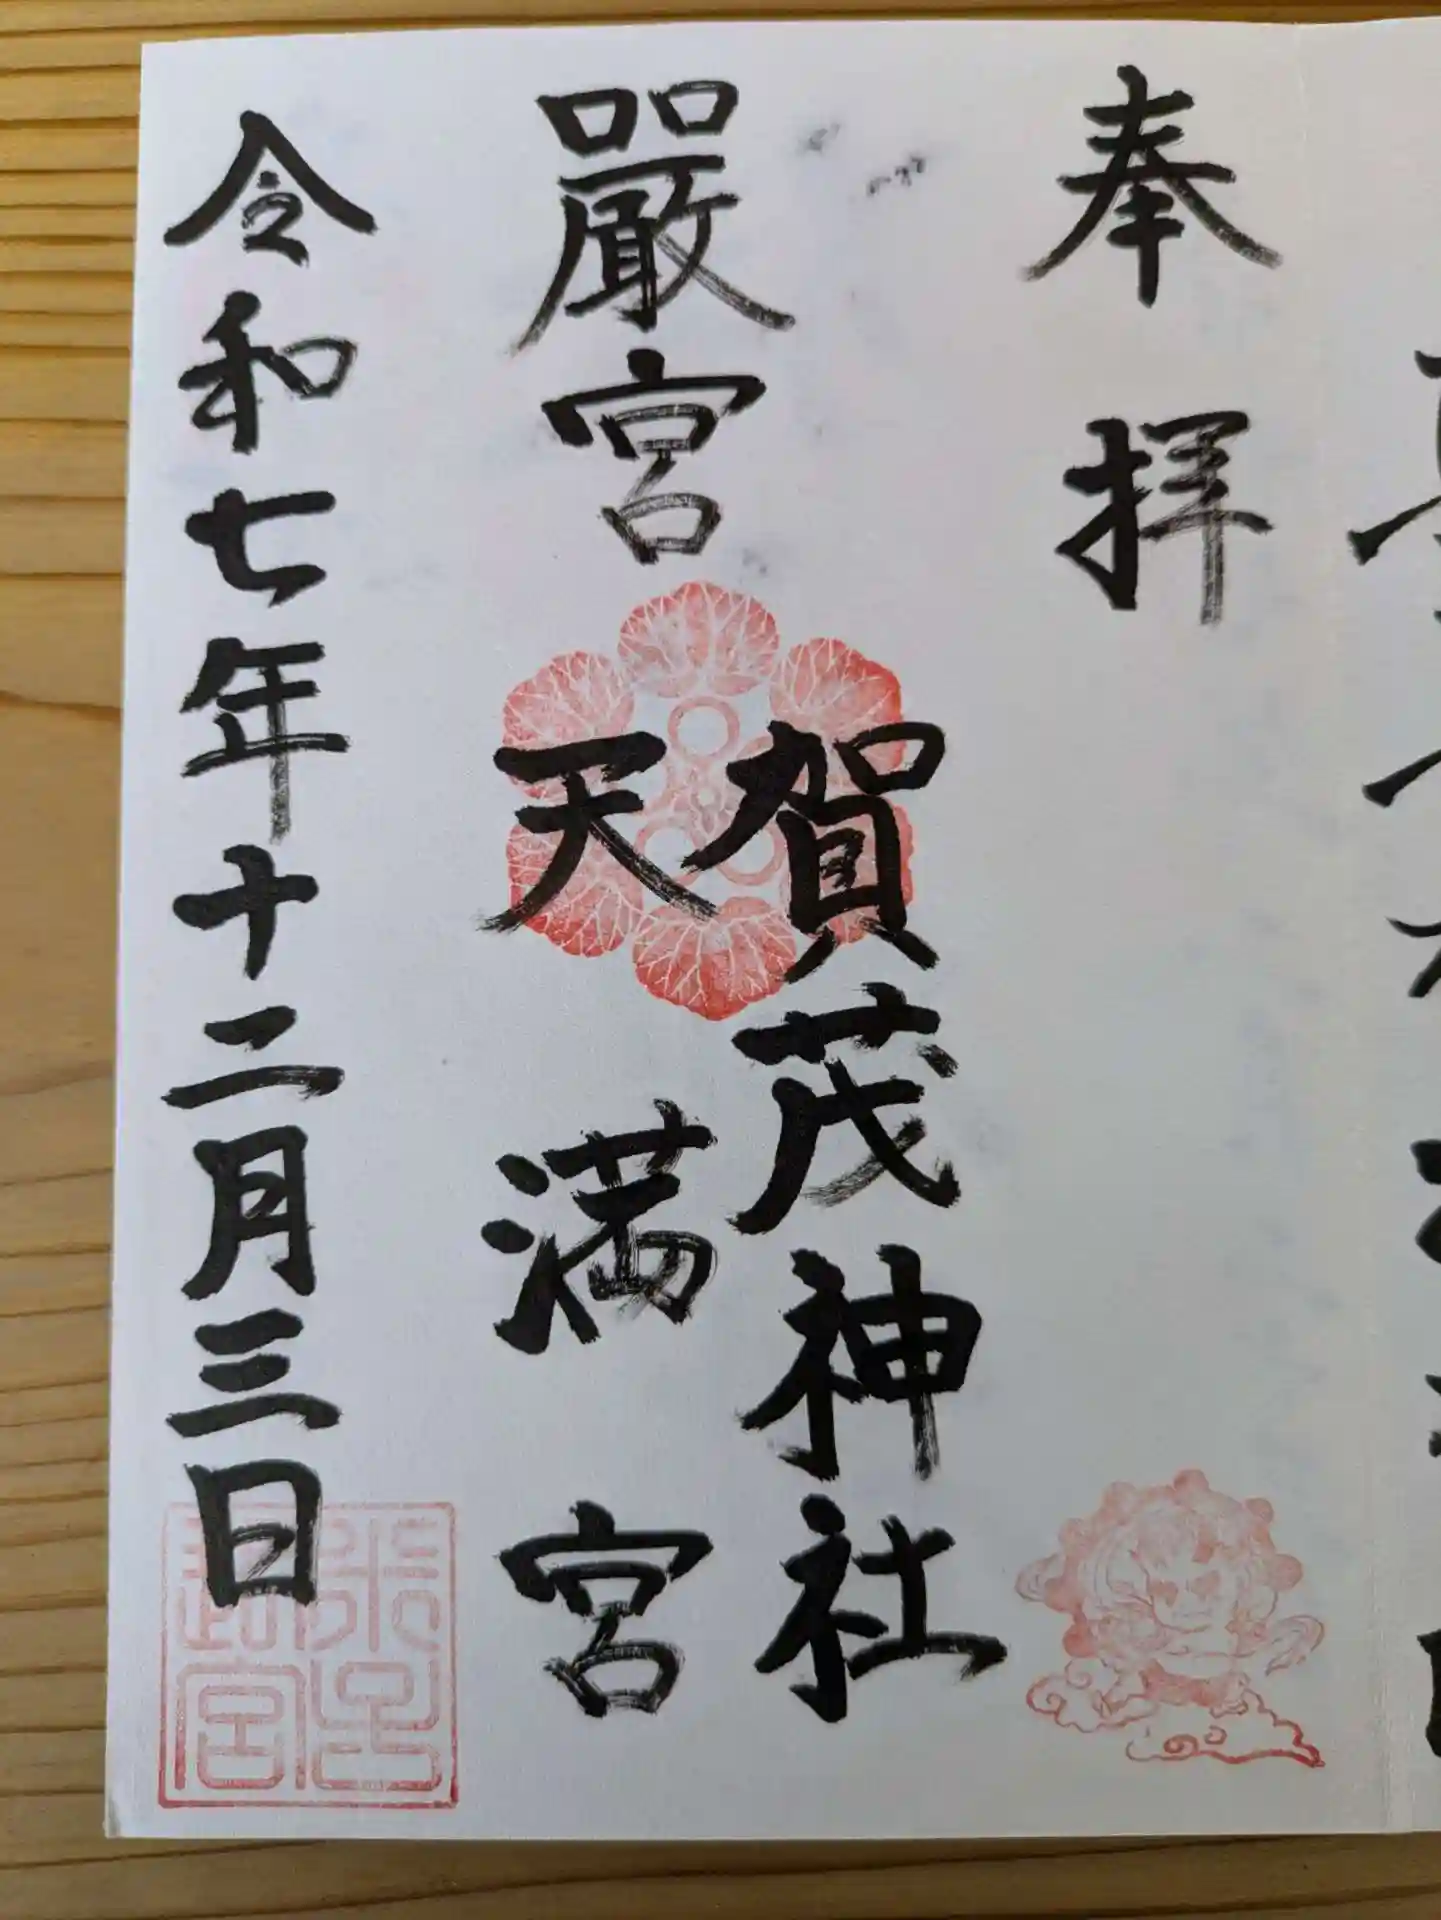 奉拝
嚴宮
賀茂神社
天満宮
令和七年十二月三日